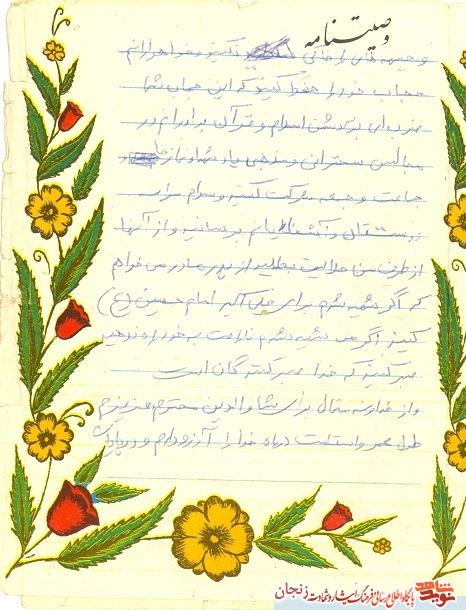 وصیتنامه
و جبهه های را خالی نکنید و خواهرانم
حجاب خود را حفظ کنید که این حجاب شما
ضربه ای بر دشمن اسلام و قرآن برادرام در
مجالس سخنرانی و مذهبی یاد شهدا و نماز
جماعت و جمعه شرکت کنید و سلام مرا به
دوستان و آشنایانم برسانید و از آنها
از طرف من حلالیت بطلبید از پدر و مادر می خواهم
که اگر شهید شدم برای علی اکبر امام حسین (ع)
کنید اگر من شهید شدم ناراحت به خود راه ندهید
صبر کنید که خدا صبر کنندگان است
و از خداوند متعال برای شما والدین محترم عزیزم
طول عمر و استقامت در راه خدا را آرزو دارم و در
نوید شاهد
پایگاه اطلاع رسانی فرهنگ ایثار و شهادت زنجان